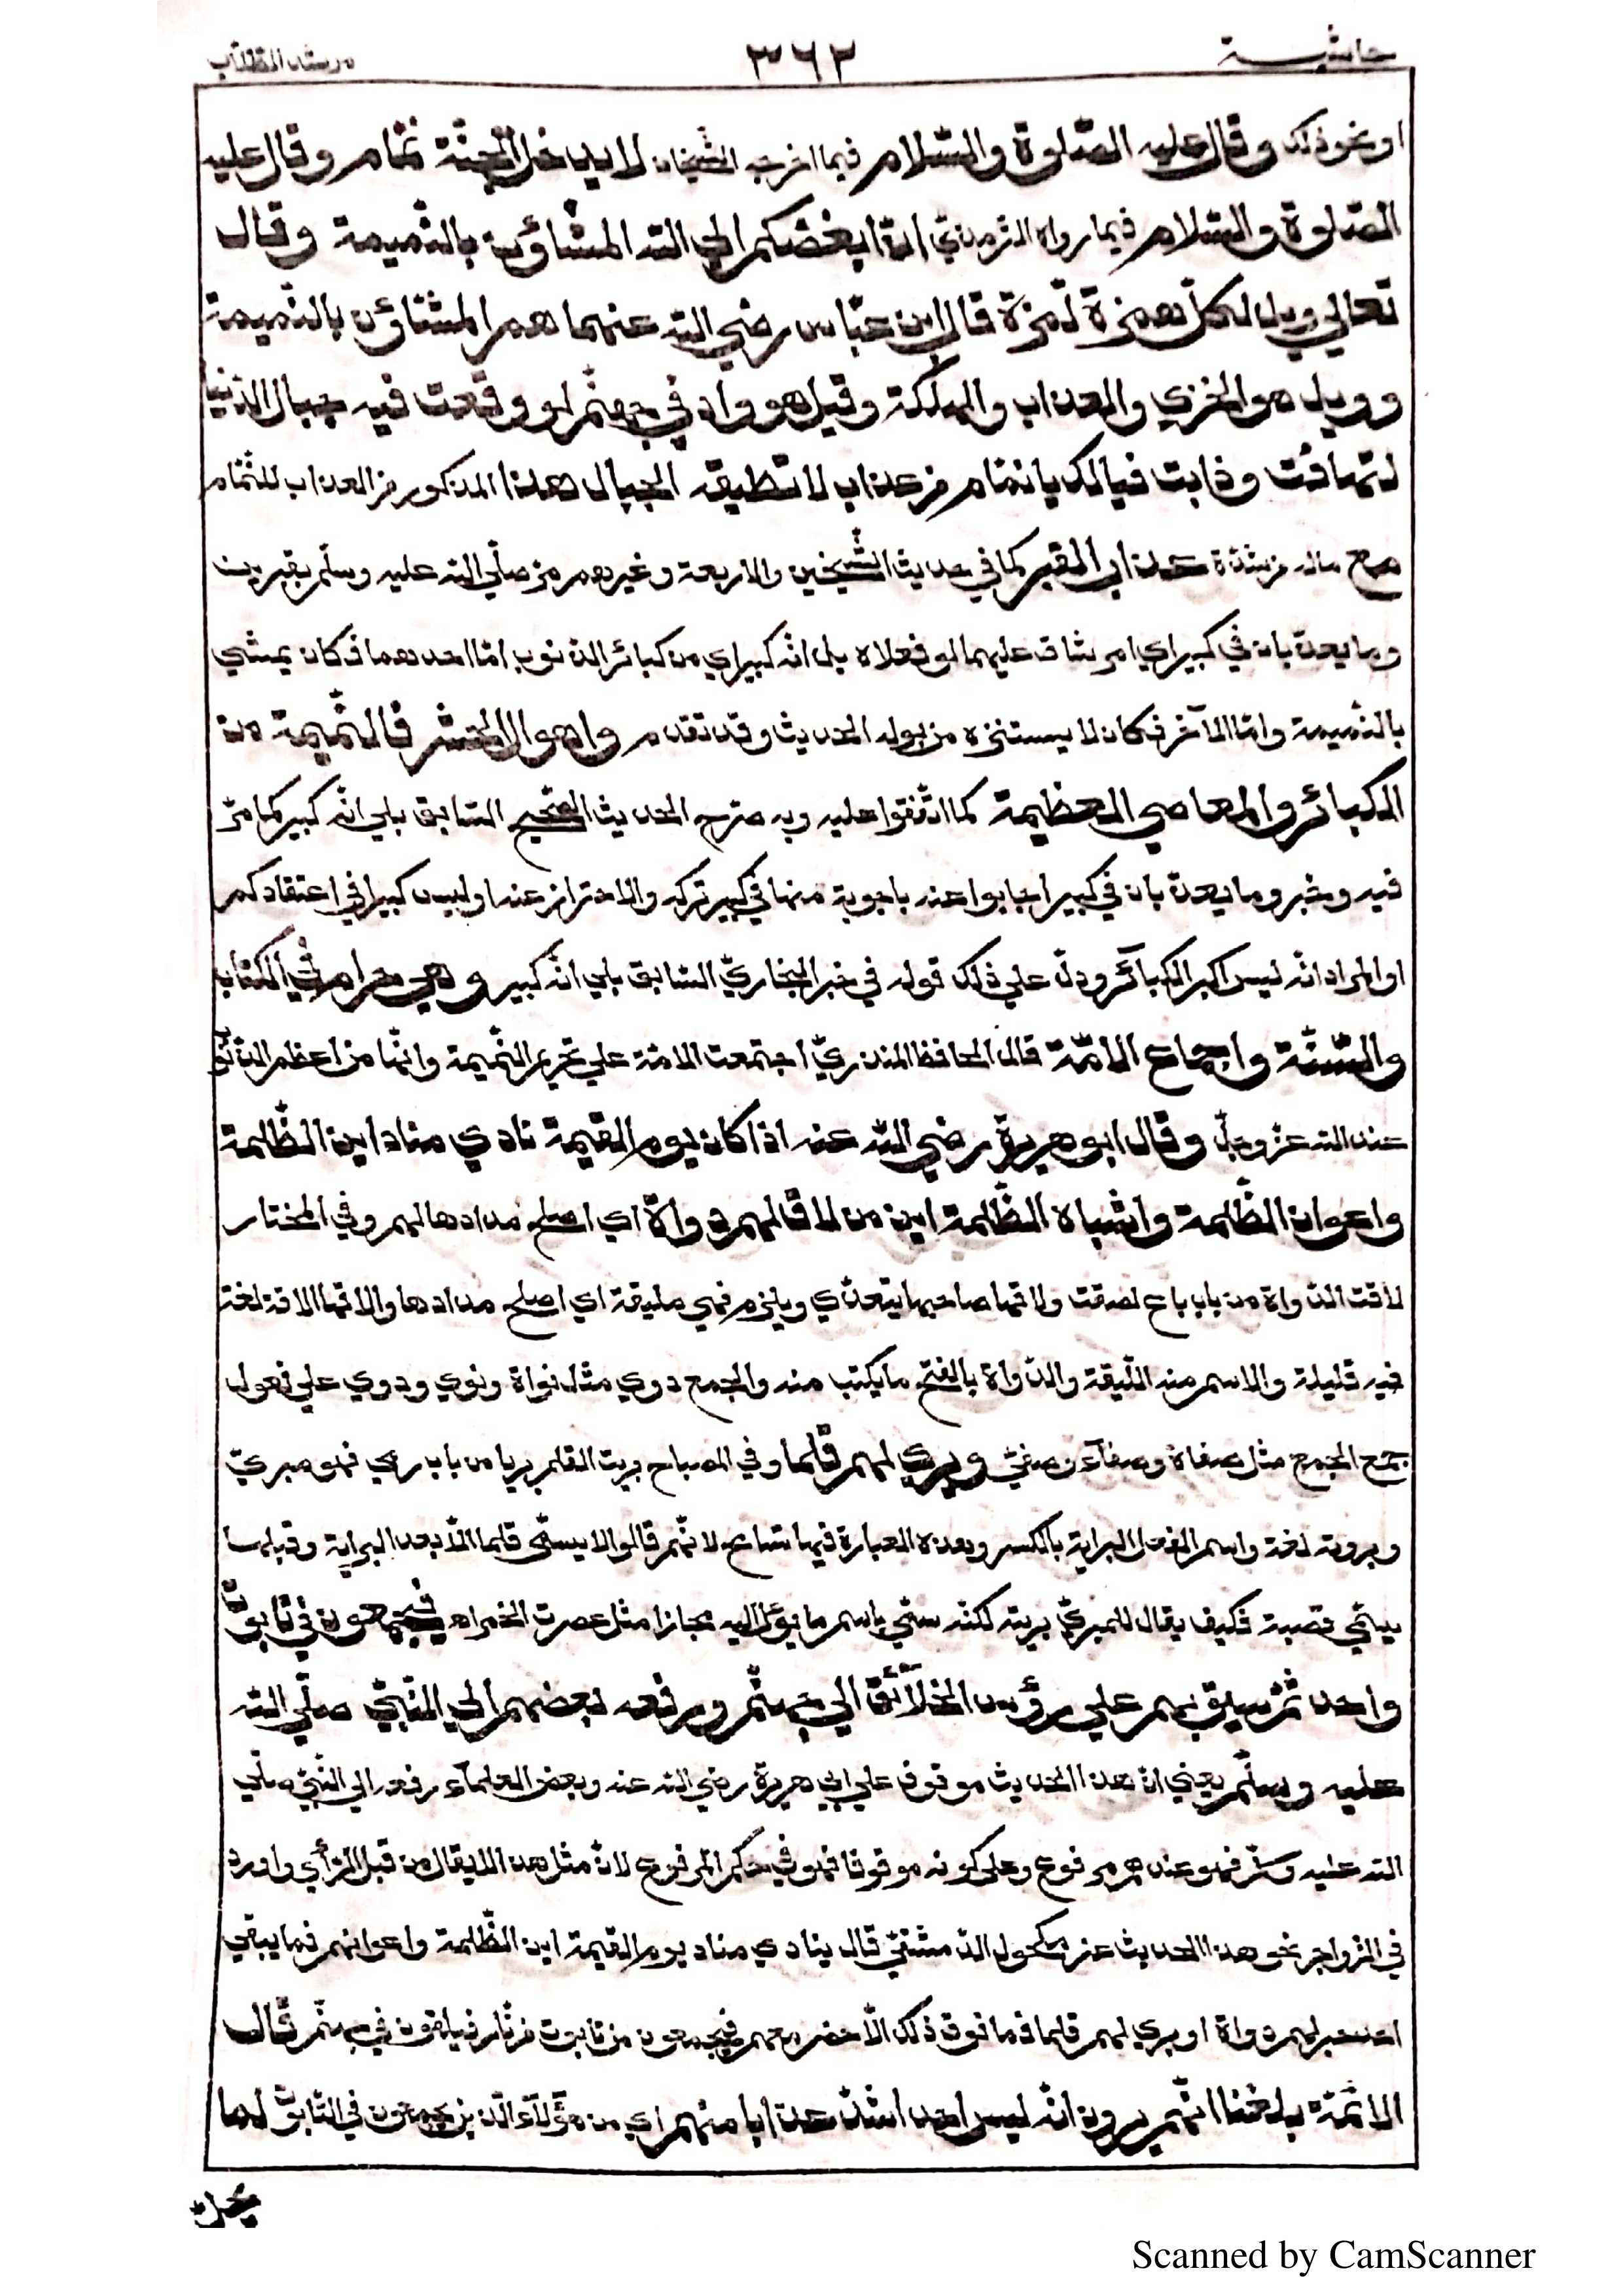 حاشية ٣٦٢ مرشد الطلاب
او نحو ذلك وقال عليه الصلوة والسّلام فيما اخرجه الشّيخان لا يدخل الجنّة نمّام وقال عليه
الصّلوة والسّلام فيما رواه الترمذيّ انّ ابغضكم الي الله المشّاؤن بالنّميمة وقال
تعالي ويل لكلّ همزة لّمزة قال ابن عبّاس رضي الله عنهما هم المشّاؤن بالنّميمة
وويل هو الخزي والعذاب والهلكة وقيل هو واد في جهنّم لو وقعت فيه جبال الدّنيا
لتهافتت وذابت فيا لك يا نمّام من عذاب لا تطيقه الجبال هذا المذكور من العذاب للنّمّام
مع ماله من شدّة عذاب القبر كما في حديث الشّيخين والاربعة وغيرهم مرّ صلّي الله عليه وسلّم بقبرين
وما يعذّبان في كبير اي امر شاق عليهما لو فعلاه بل انّه كبير اي من كبائر الذنوب امّا احدهما فكان يمشي
بالنّميمة وامّا الآخر فكان لا يستنزه من بوله الحديث وقد تقدم واهوال المحشر فالنّميمة من
الكبائر والمعاصي العظيمة كما اتّفقوا عليه وبه صرّح الحديث الصّحيح السّابق بلي انّه كبير كما مرّ
فيه وخبر وما يعذّبان في كبير اجابوا عنه باجوبة منها في كبير تركه والاحتراز عنه او ليس كبيرا في اعتقادكم
او المراد انّه ليس اكبر الكبآئر ودلّ علي ذلك قوله في خبر البخاريّ السّابق بلي انّه كبير وهي حرام في الكتاب
والسّنّة واجماع الامّة قال الحافظ المنذريّ اجتمعت الامّة علي تحريم النّميمة وانّها من اعظم الذّنوب
عند الله عزّ وجلّ وقال ابو هريرة رضي الله عنه اذا كان يوم القيمة نادي مناد اين الظّلمة
واعوان الظّلمة واشباه الظّلمة اين من لاق لهم دواة اي اصلح مدادها لهم وفي المختار
لاقت الدّواة من باب باع لصقت ولاقها صاحبها يتعدّي ويلزم فهي مليقة اي اصلح مدادها والاقها الاقة لغة
فيه قليلة والاسم منه اللّيقة والدّواة بالفتح ما يكتب منه والجمع دوي مثل نواة ونوي ودوي علي فعول
جمع الجمع مثل صفاة وصفآء وصفيّ وبري لهم قلما وفي المصباح بريت القلم بريا من باب رمي فهو مبريّ
وبروته لغة واسم الفعل البراية بالكسر وهذه العبارة فيها تسامح لانّهم قالوا لا يسمّي قلما الّا بعد البراية وقبلها
يسمّي قصبة فكيف يقال للمبريّ بريته لكنّه سمّي باسم ما يؤل اليه مجازا مثل عصرت الخمر اه فيجمعون في تابوت
واحد ثمّ سيق بهم علي رؤس الخلآئق الي جهنّم ورفعه بعضهم الي النّبيّ صلّي الله
عليه وسلّم يعني انّ هذا الحديث موقوف علي ابي هريرة رضي الله عنه وبعض العلمآء رفعه الي النّبيّ صلّي
الله عليه وسلّم فهو عندهم مرفوع وعلي كونه موقوفا فهو في حكم المرفوع لانّ مثل هذا لا يقال من قبل الرّأي واورد
في الزواجر نحو هذا الحديث عن مكحول الدّمشقيّ قال ينادي مناد يوم القيمة اين الظّلمة واعوانهم فما يبقي
احد حبر لهم دواة او بري لهم قلما فما فوق ذلك الّا حضر معهم فيجمعون في تابوت من نار فيلقون في جهنّم قال
الائمّة بلغنا انّهم يرون انّه ليس احد اشدّ عذابا منهم اي من هؤلآء الّذين يجمعون في التّابوت لما